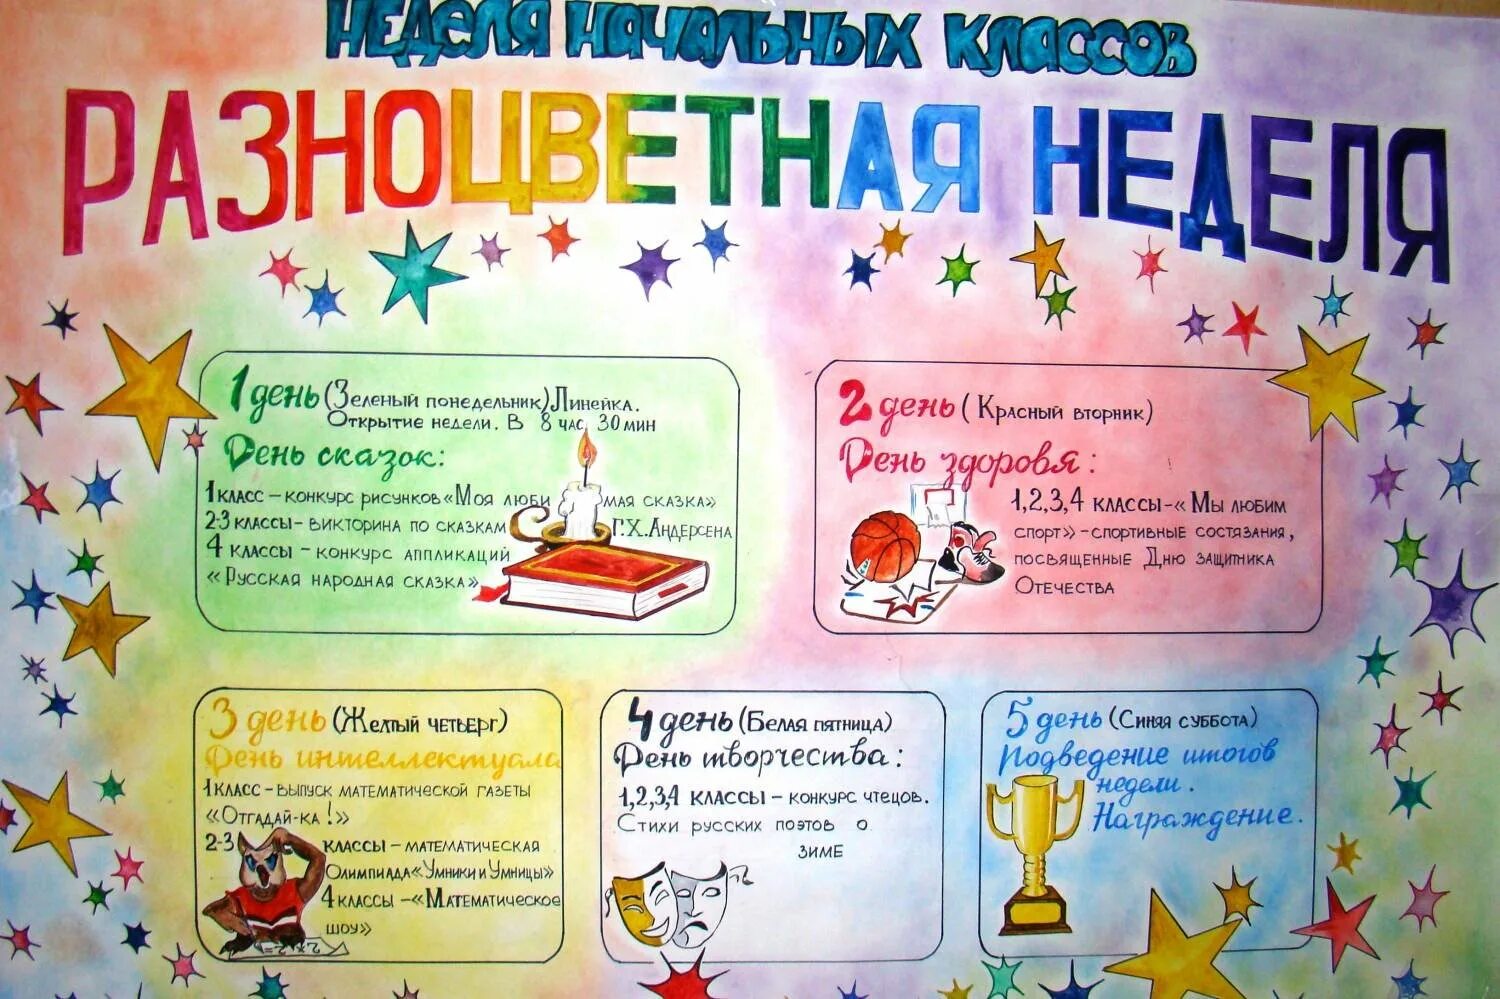 Неделя начальных классов
РАЗНОЦВЕТНАЯ НЕДЕЛЯ
1 день (Зеленый понедельник) Линейка.
Открытие недели. В 8 час. 30 мин
День сказок:
1 класс – конкурс рисунков «Моя любимая сказка»
2-3 классы – викторина по сказкам Г.Х. Андерсена
4 классы – конкурс аппликаций
«Русская народная сказка»
2 день (Красный вторник)
День здоровья:
1,2,3,4 классы – «Мы любим
спорт» – спортивные состязания,
посвященные Дню защитника
Отечества
3 день (Желтый четверг)
День интеллектуала
1 класс – выпуск математической газеты
«Отгадай-ка!»
2-3 классы – математическая
Олимпиада «Умники и Умницы»
4 классы – «Математическое
шоу»
4 день (Белая пятница)
День творчества:
1,2,3,4 классы – конкурс чтецов.
Стихи русских поэтов о
зиме
5 день (Синяя суббота)
Подведение итогов
недели.
Награждение.
2x2=